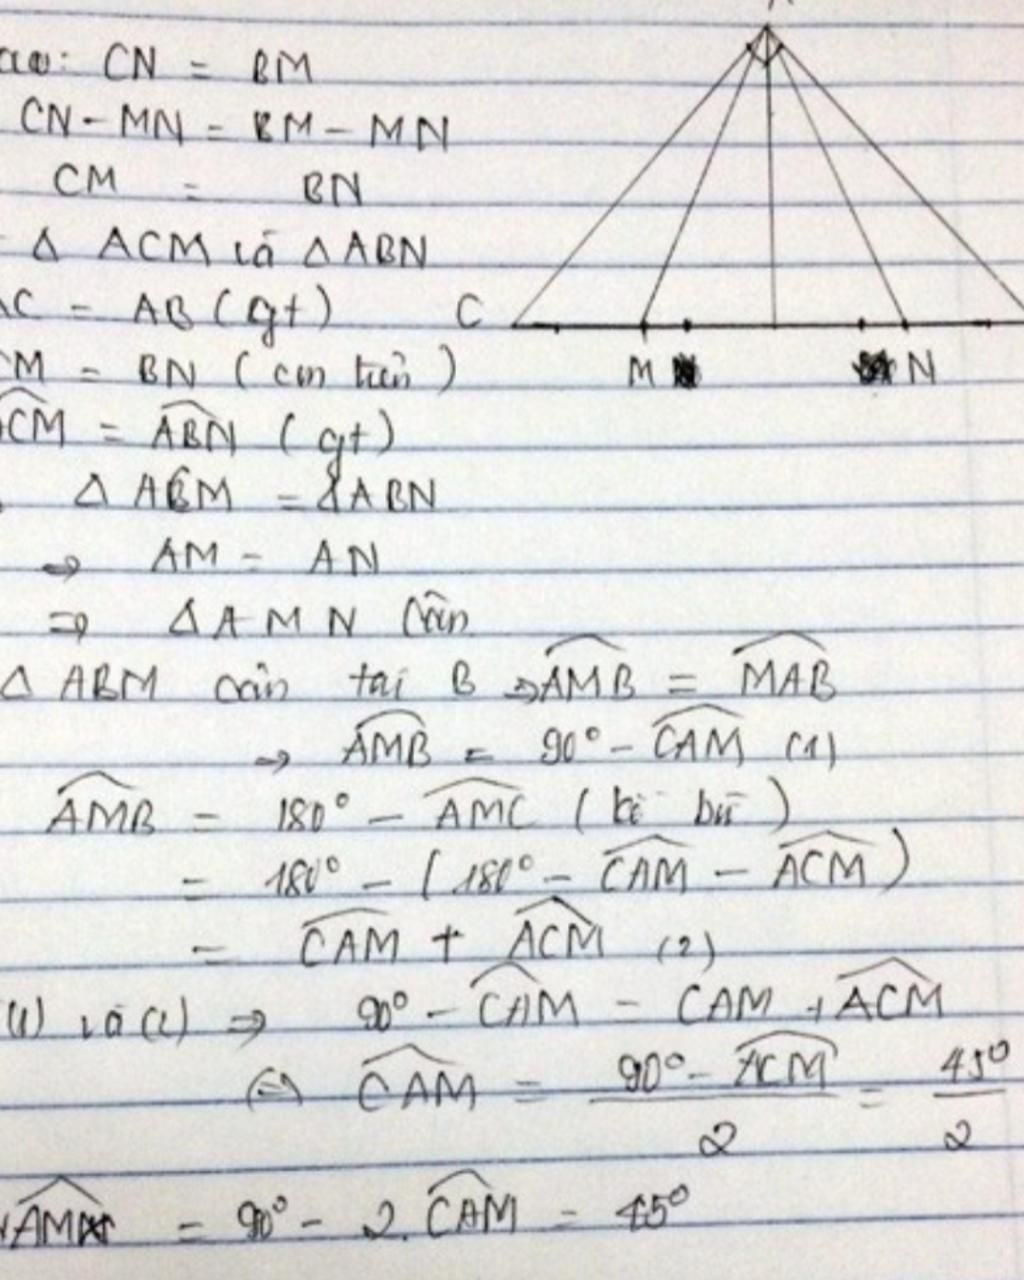 CN = BM
CN - MN = BM - MN
CM = BN
Δ ACM và Δ ABN
AC = AB (gt)
C
CM = BN (cm trên)
M N
ACM = ABN (gt)
Δ ACM = Δ ABN
⇒ AM = AN
⇒ Δ AMN cân
Δ ABM cân tại B ⇒ AMB = MAB
⇒ AMB = 90° - CAM (1)
AMB = 180° - AMC (kề bù)
= 180° - (180° - CAM - ACM)
= CAM + ACM (2)
(1) và (2) ⇒ 90° - CAM = CAM + ACM
⇔ CAM = (90° - ACM)/2 = 45°/2
= 90° - 2. CAM = 45°